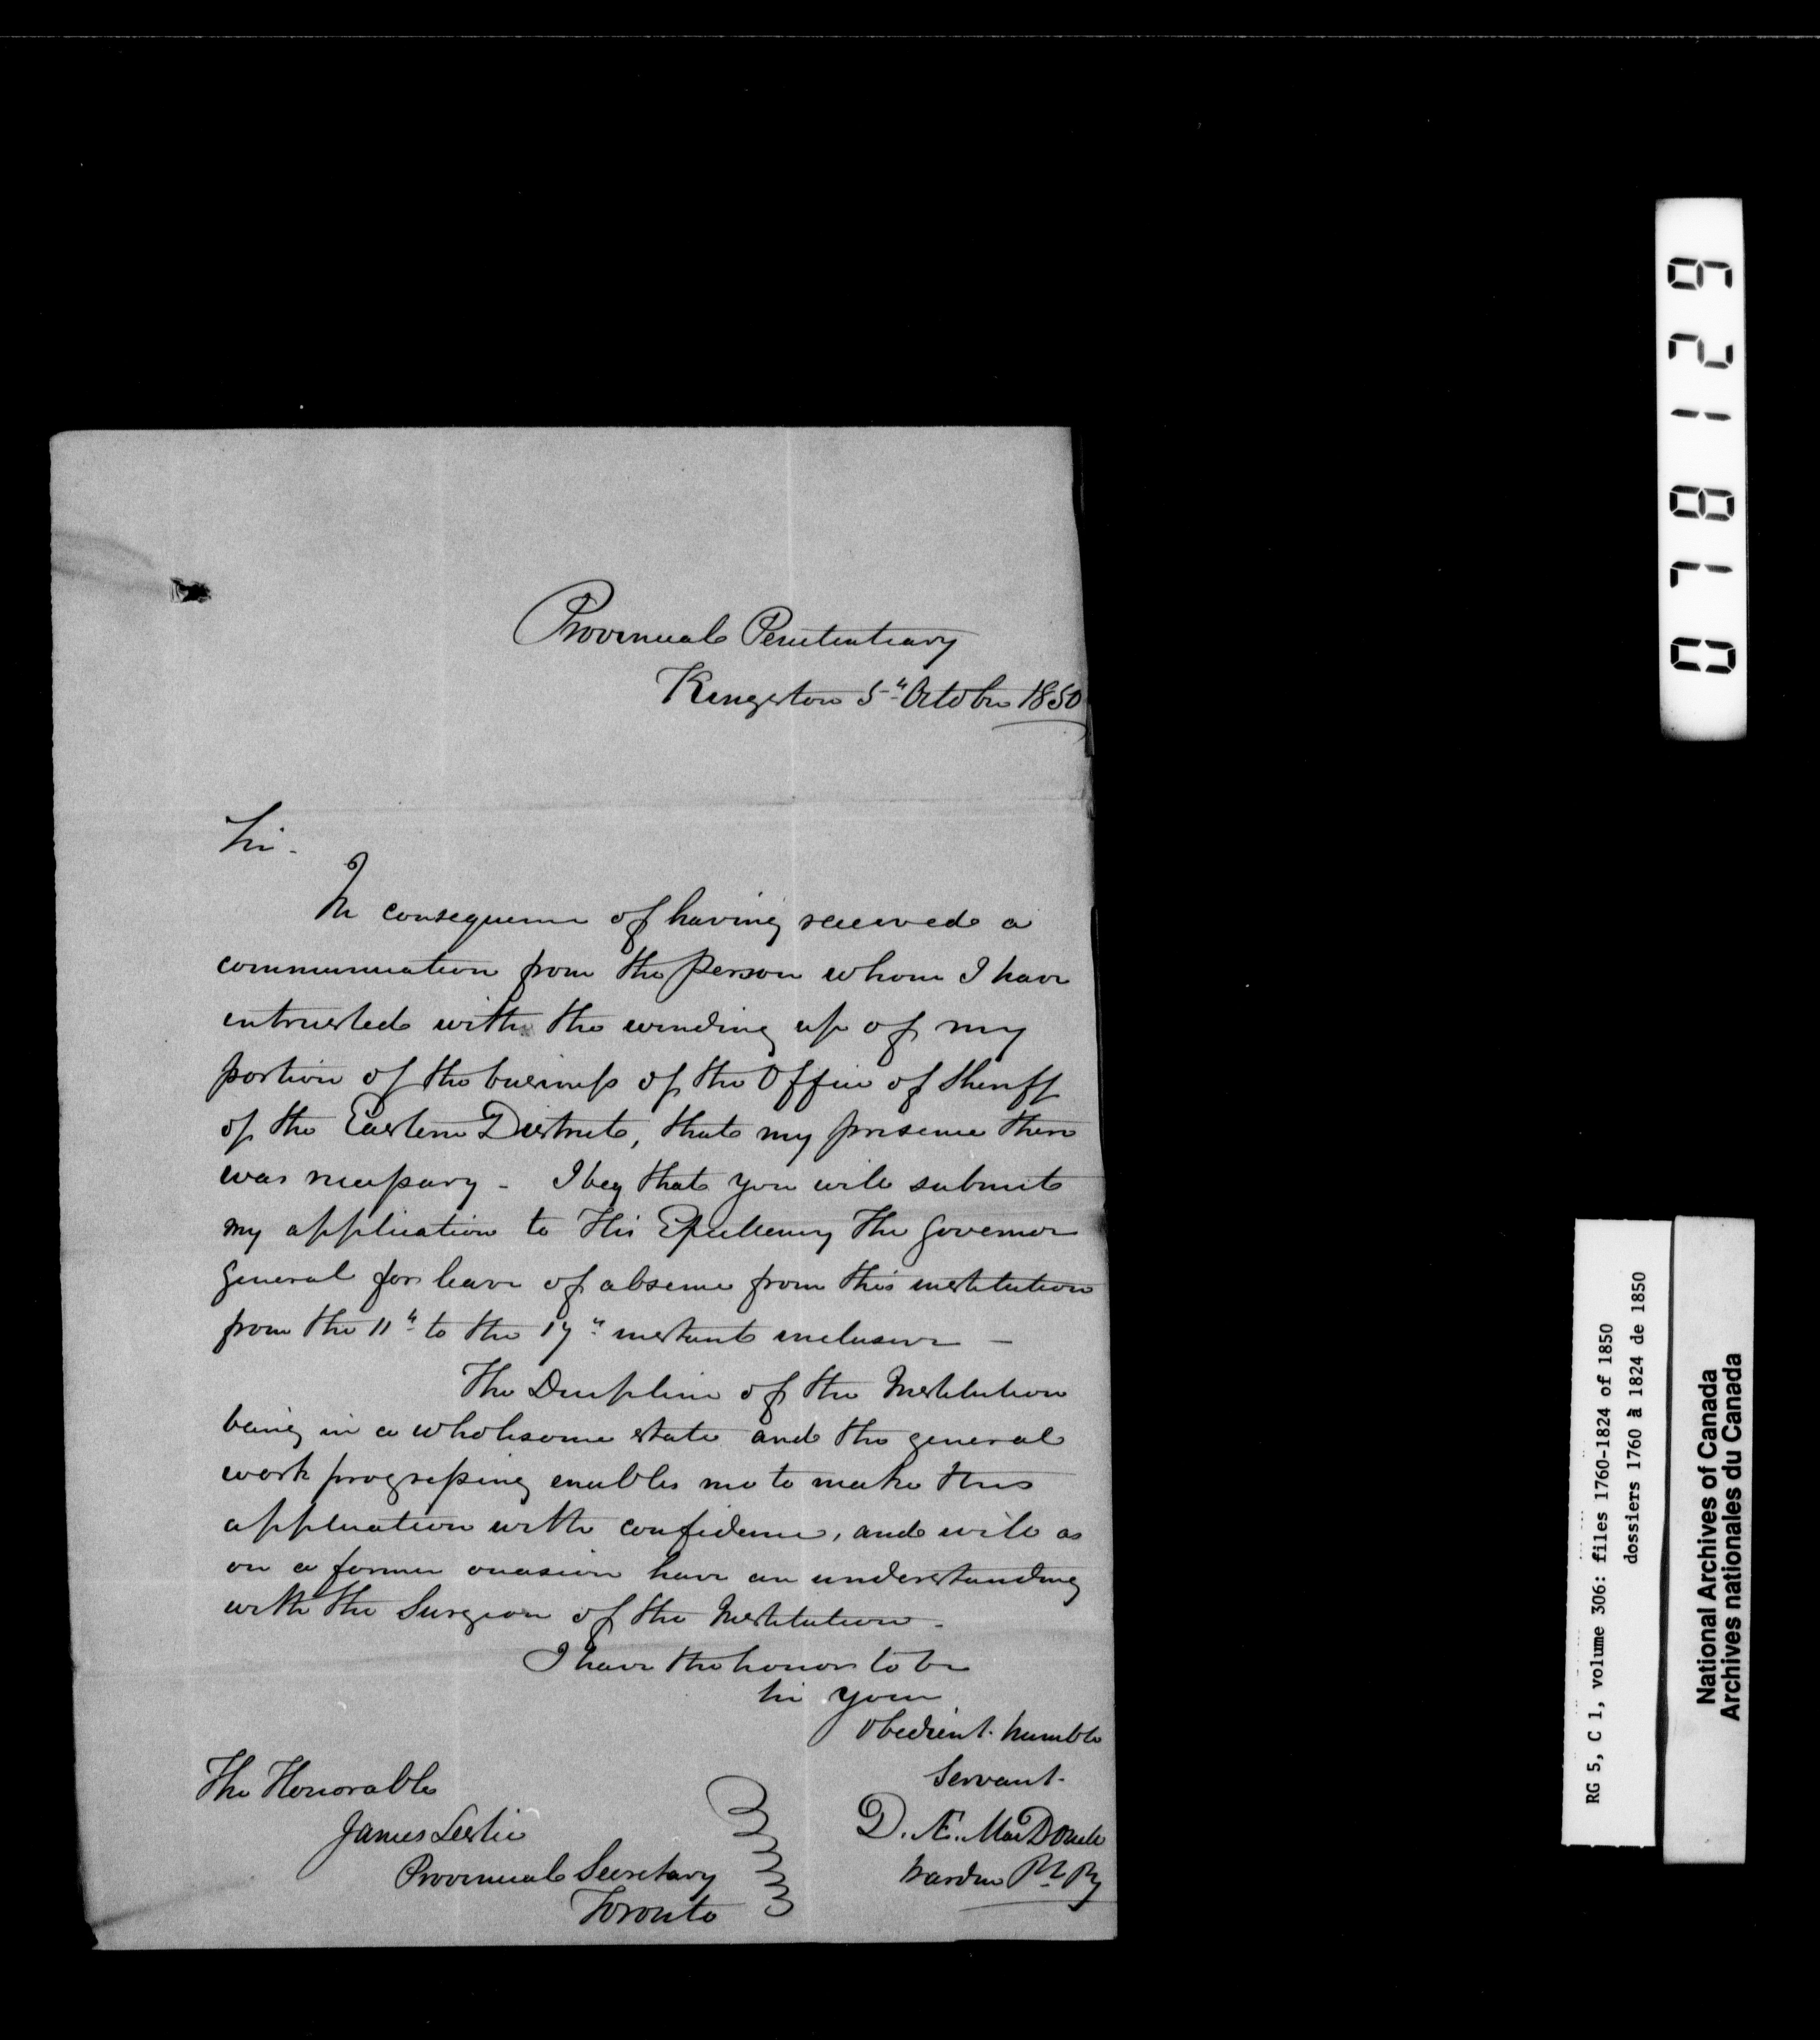 Provincial Penitentiary
Kingston 5th October 1850
Sir.
In consequence of having received a
communication from the person whom I have
entrusted with the winding up of my
portion of the business of the Office of Sheriff
of the Eastern District, that my presence there
was necessary - I beg that you will submit
my application to His Excellency The Governor
General for leave of absence from this institution
from the 11th to the 17th instant inclusive -
The Discipline of the Institution
being in a wholesome state and the general
work progressing enables me to make this
application with confidence, and will as
on a former occasion have an understanding
with the Surgeon of the Institution.
I have the honor to be
Sir your
obedient humble
Servant.
D. Æ. MacDonell
Warden Pl Py
The Honorable
James Leslie
Provincial Secretary
Toronto
071812 9
RG 5, C 1, volume 306: files 1760-1824 of 1850
dossiers 1760 à 1824 de 1850
National Archives of Canada
Archives nationales du Canada